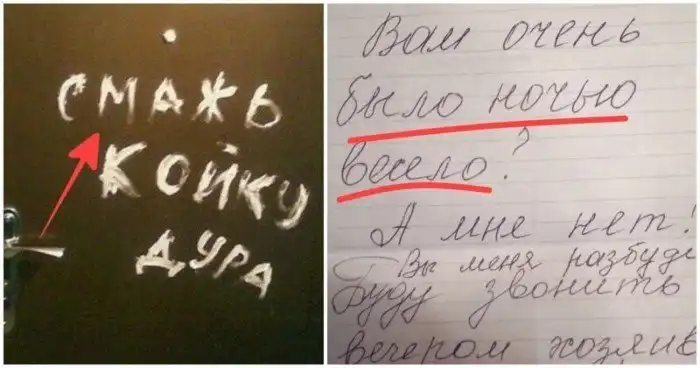 СМАЖЬ
КОЙКУ
ДУРА
Вам очень
было ночью
весело?
А мне нет!
Вы меня разбуди
Буду звонить
вечером хозяик